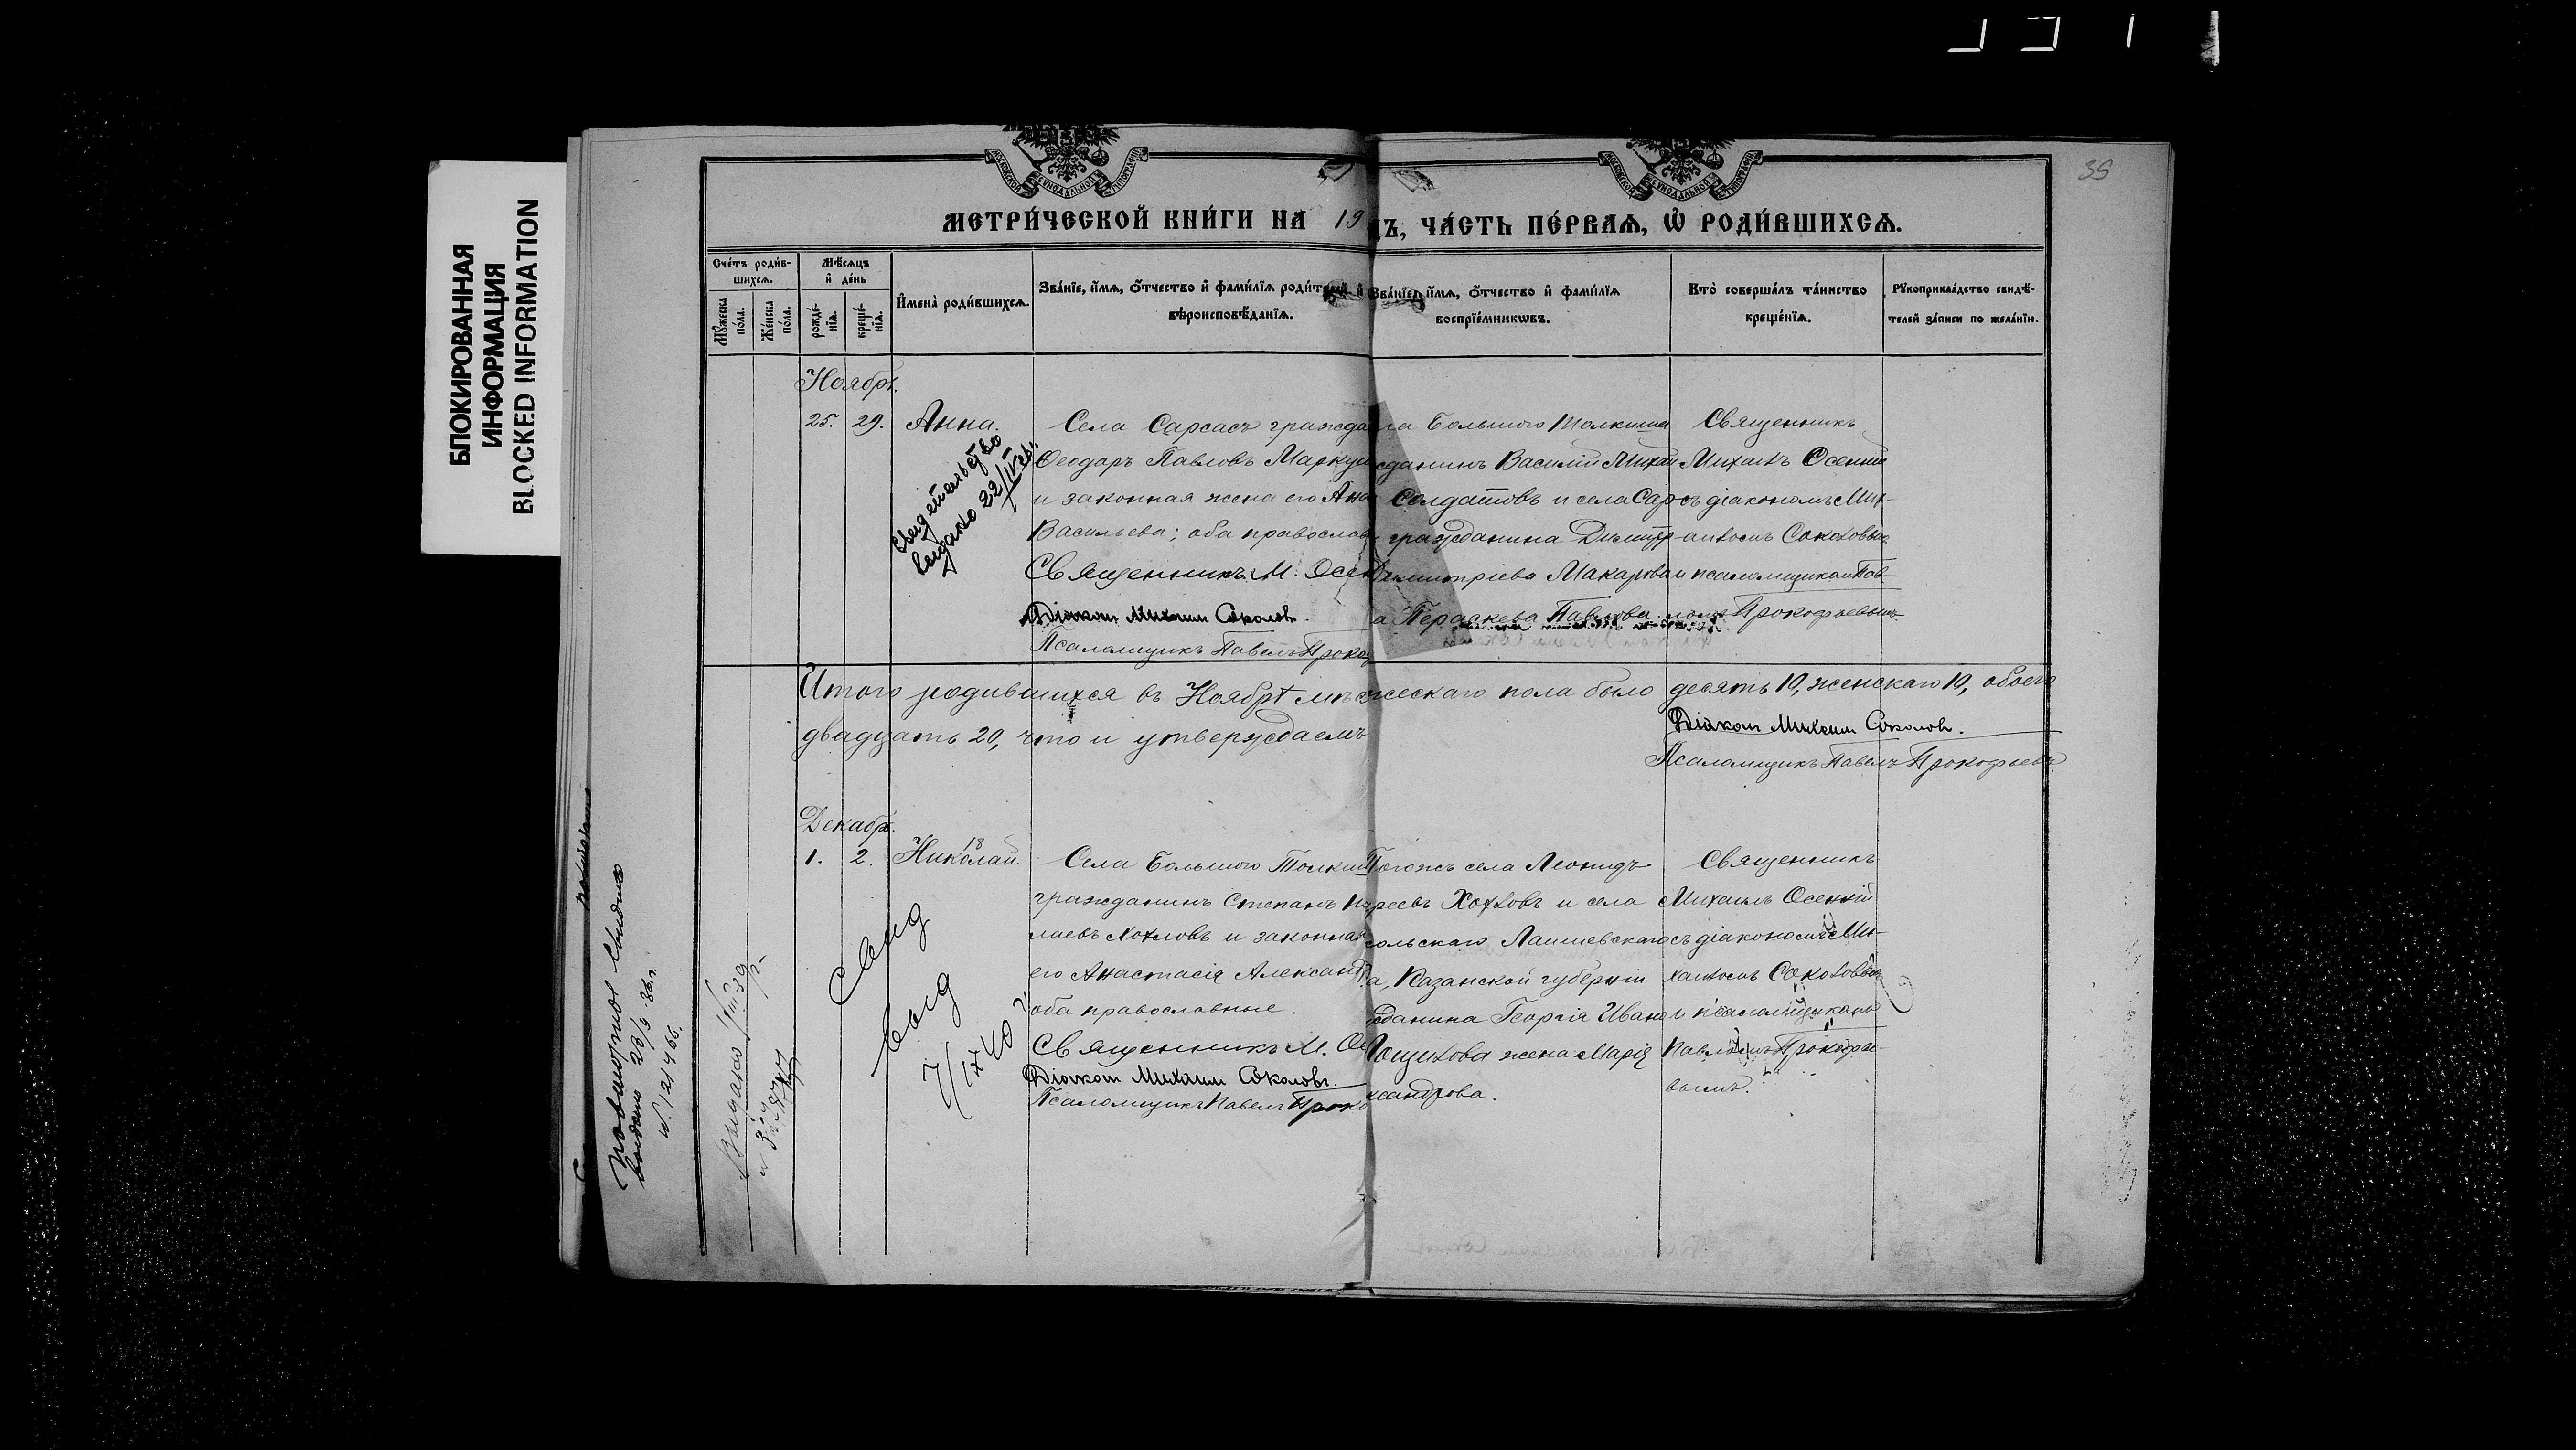 БЛОКИРОВАННАЯ
ИНФОРМАЦИЯ
BLOCKED INFORMATION
35
МОСКОВСКОЙ СѴНОДАЛЬНОЙ ТИПОГРАФІИ
МОСКОВСКОЙ СѴНОДАЛЬНОЙ ТИПОГРАФІИ
МЕТРИ́ЧЕСКОЙ КНИ́ГИ НА 19
ДЪ, ЧА́СТЬ ПЕ́РВАѦ, Ѽ РОДИ́ВШИХСѦ.
Сче́тъ роди́в-
шихсѧ.
Мѣ́сѧцъ
и҆ де́нь
Мꙋ́жеска
по́ла.
Же́нска
по́ла.
рожде́-
нїѧ.
креще́-
нїѧ.
И҆мена̀ роди́вшихсѧ.
Зва́нїе, и҆́мѧ, ѻ҆́тчество и҆ фами́лїѧ роди́телей и҆
вѣроисповѣ́данїѧ.
Зва́нїе, и҆́мѧ, ѻ҆́тчество и҆ фами́лїѧ
воспрїе́мникѡвъ.
Кто̀ соверша́лъ та́инство
креще́нїѧ.
Рꙋкоприкла́дство свидѣ́-
телей за́писи по жела́нїю.
Ноябрь.
25. 29. Анна.
Свидетельство
выдано 22/IV
Села Сарсасъ гражда
Ѳеодоръ Павловъ Марку
и законная жена его Ан
Васильева; оба православ
Священникъ М. Осен
Діаконъ Михаилъ Соколовъ.
Псаломщикъ Павелъ Прокоф
ла Большого Толкиша
жданинъ Василій Михаи
Солдатовъ и села Сар
гражданина Димитр
Димитріева Макарова
а Параскева Павлова
Священникъ
Михаилъ Осенній
съ діакономъ Мих-
аиломъ Соколовымъ
и псаломщикомъ Пав-
ломъ Прокофьевымъ.
Итого родившихся въ Ноябрѣ мѣс
жескаго пола было девять 10, женскаго 10, обоего
двадцать 20, что и утверждаемъ
Діаконъ Михаилъ Соколовъ.
Псаломщикъ Павелъ Прокофьевъ
Декабрь.
18
1. 2. Николай.
Свид
выд
7/IX 40 г
Села Большого Толкиш
гражданинъ Степанъ Ни
лаевъ Хохловъ и законная
его Анастасія Александр
оба православные.
Священникъ М. Ос
Діаконъ Михаилъ Соколовъ.
Псаломщикъ Павелъ Проко
Тогожъ села Леонидъ
реевъ Хохловъ и села
сольскаго Лаишевскаго
а, Казанской губерніи
жданина Георгія Ивано
Гощикова жена Марія
ксандрова.
Священникъ
Михаилъ Осенній
съ діакономъ Ми-
хаиломъ Соколовы
и псаломщикомъ
Павломъ Прокофье-
вымъ.
повторное
выдано 20/ 86 г.
Выдано